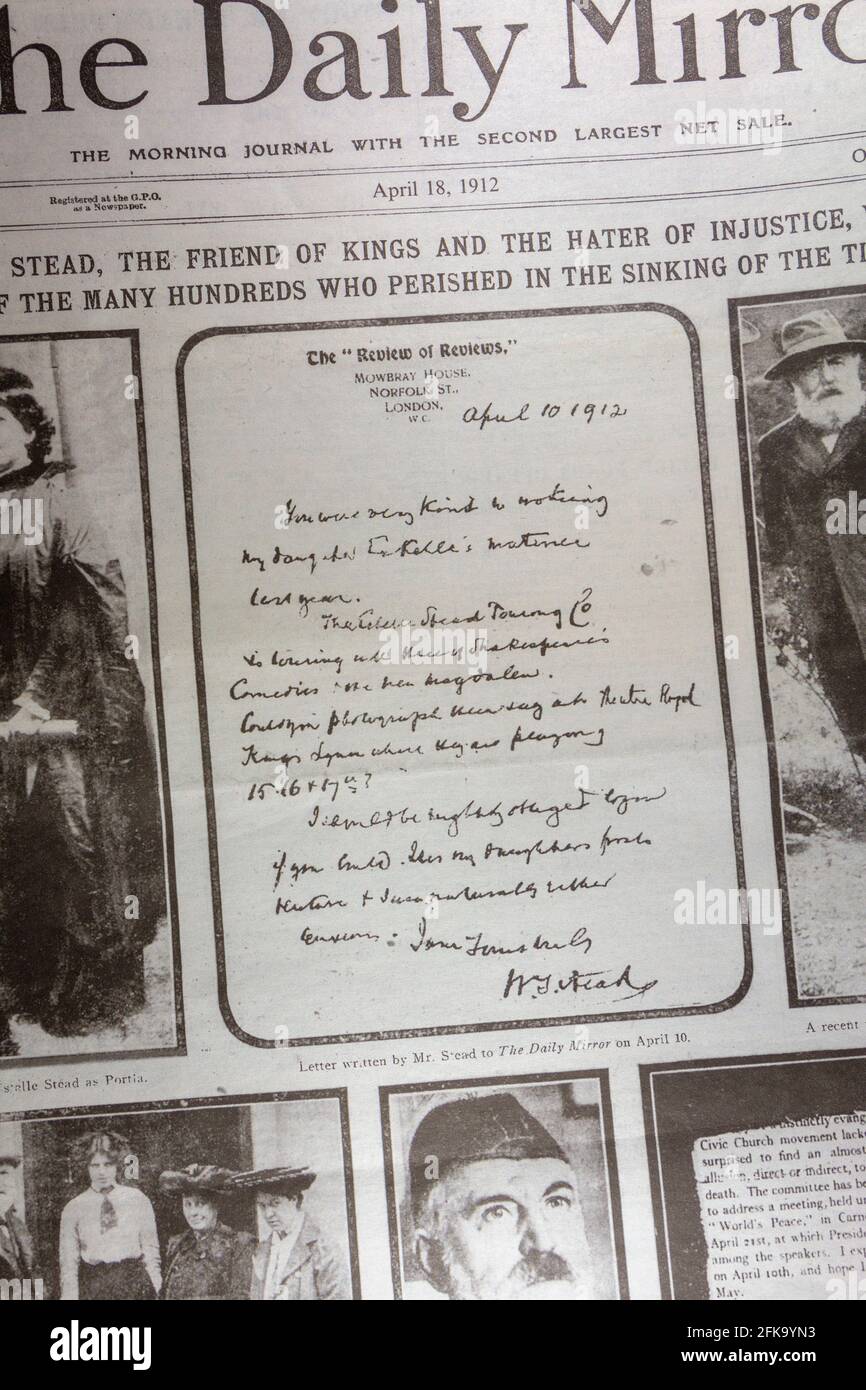 The Daily Mirro
THE MORNING JOURNAL WITH THE SECOND LARGEST NET SALE.
Registered at the G.P.O.
as a Newspaper.
April 18, 1912
STEAD, THE FRIEND OF KINGS AND THE HATER OF INJUSTICE,
F THE MANY HUNDREDS WHO PERISHED IN THE SINKING OF THE TI
The "Review of Reviews,"
MOWBRAY HOUSE,
NORFOLK ST.,
LONDON,
W.C.
April 10 1912
You were very kind in noticing
my daughter Estelle's matinee
last year.
The Estelle Stead Touring Co
is touring with three of Shakespeare's
Comedies & the new Magdalen.
Could you photograph them say at the Theatre Royal
Kings Lynn where they are playing
15.16 & 17th?
I should be mightily obliged to you
if you could. It is my daughters first
venture & I am naturally rather
anxious. I am Yours truly
W. T. Stead
stelle Stead as Portia.
Letter written by Mr. Stead to The Daily Mirror on April 10.
A recent
distinctly evang
Civic Church movement lack
surprised to find an almost
allusion, direct or indirect, to
death. The committee has be
to address a meeting, held un
"World's Peace," in Carn
April 21st, at which Preside
among the speakers. I exp
on April 10th, and hope I
May.
alamy
alamy
Image ID: 2FK9YN3
www.alamy.com